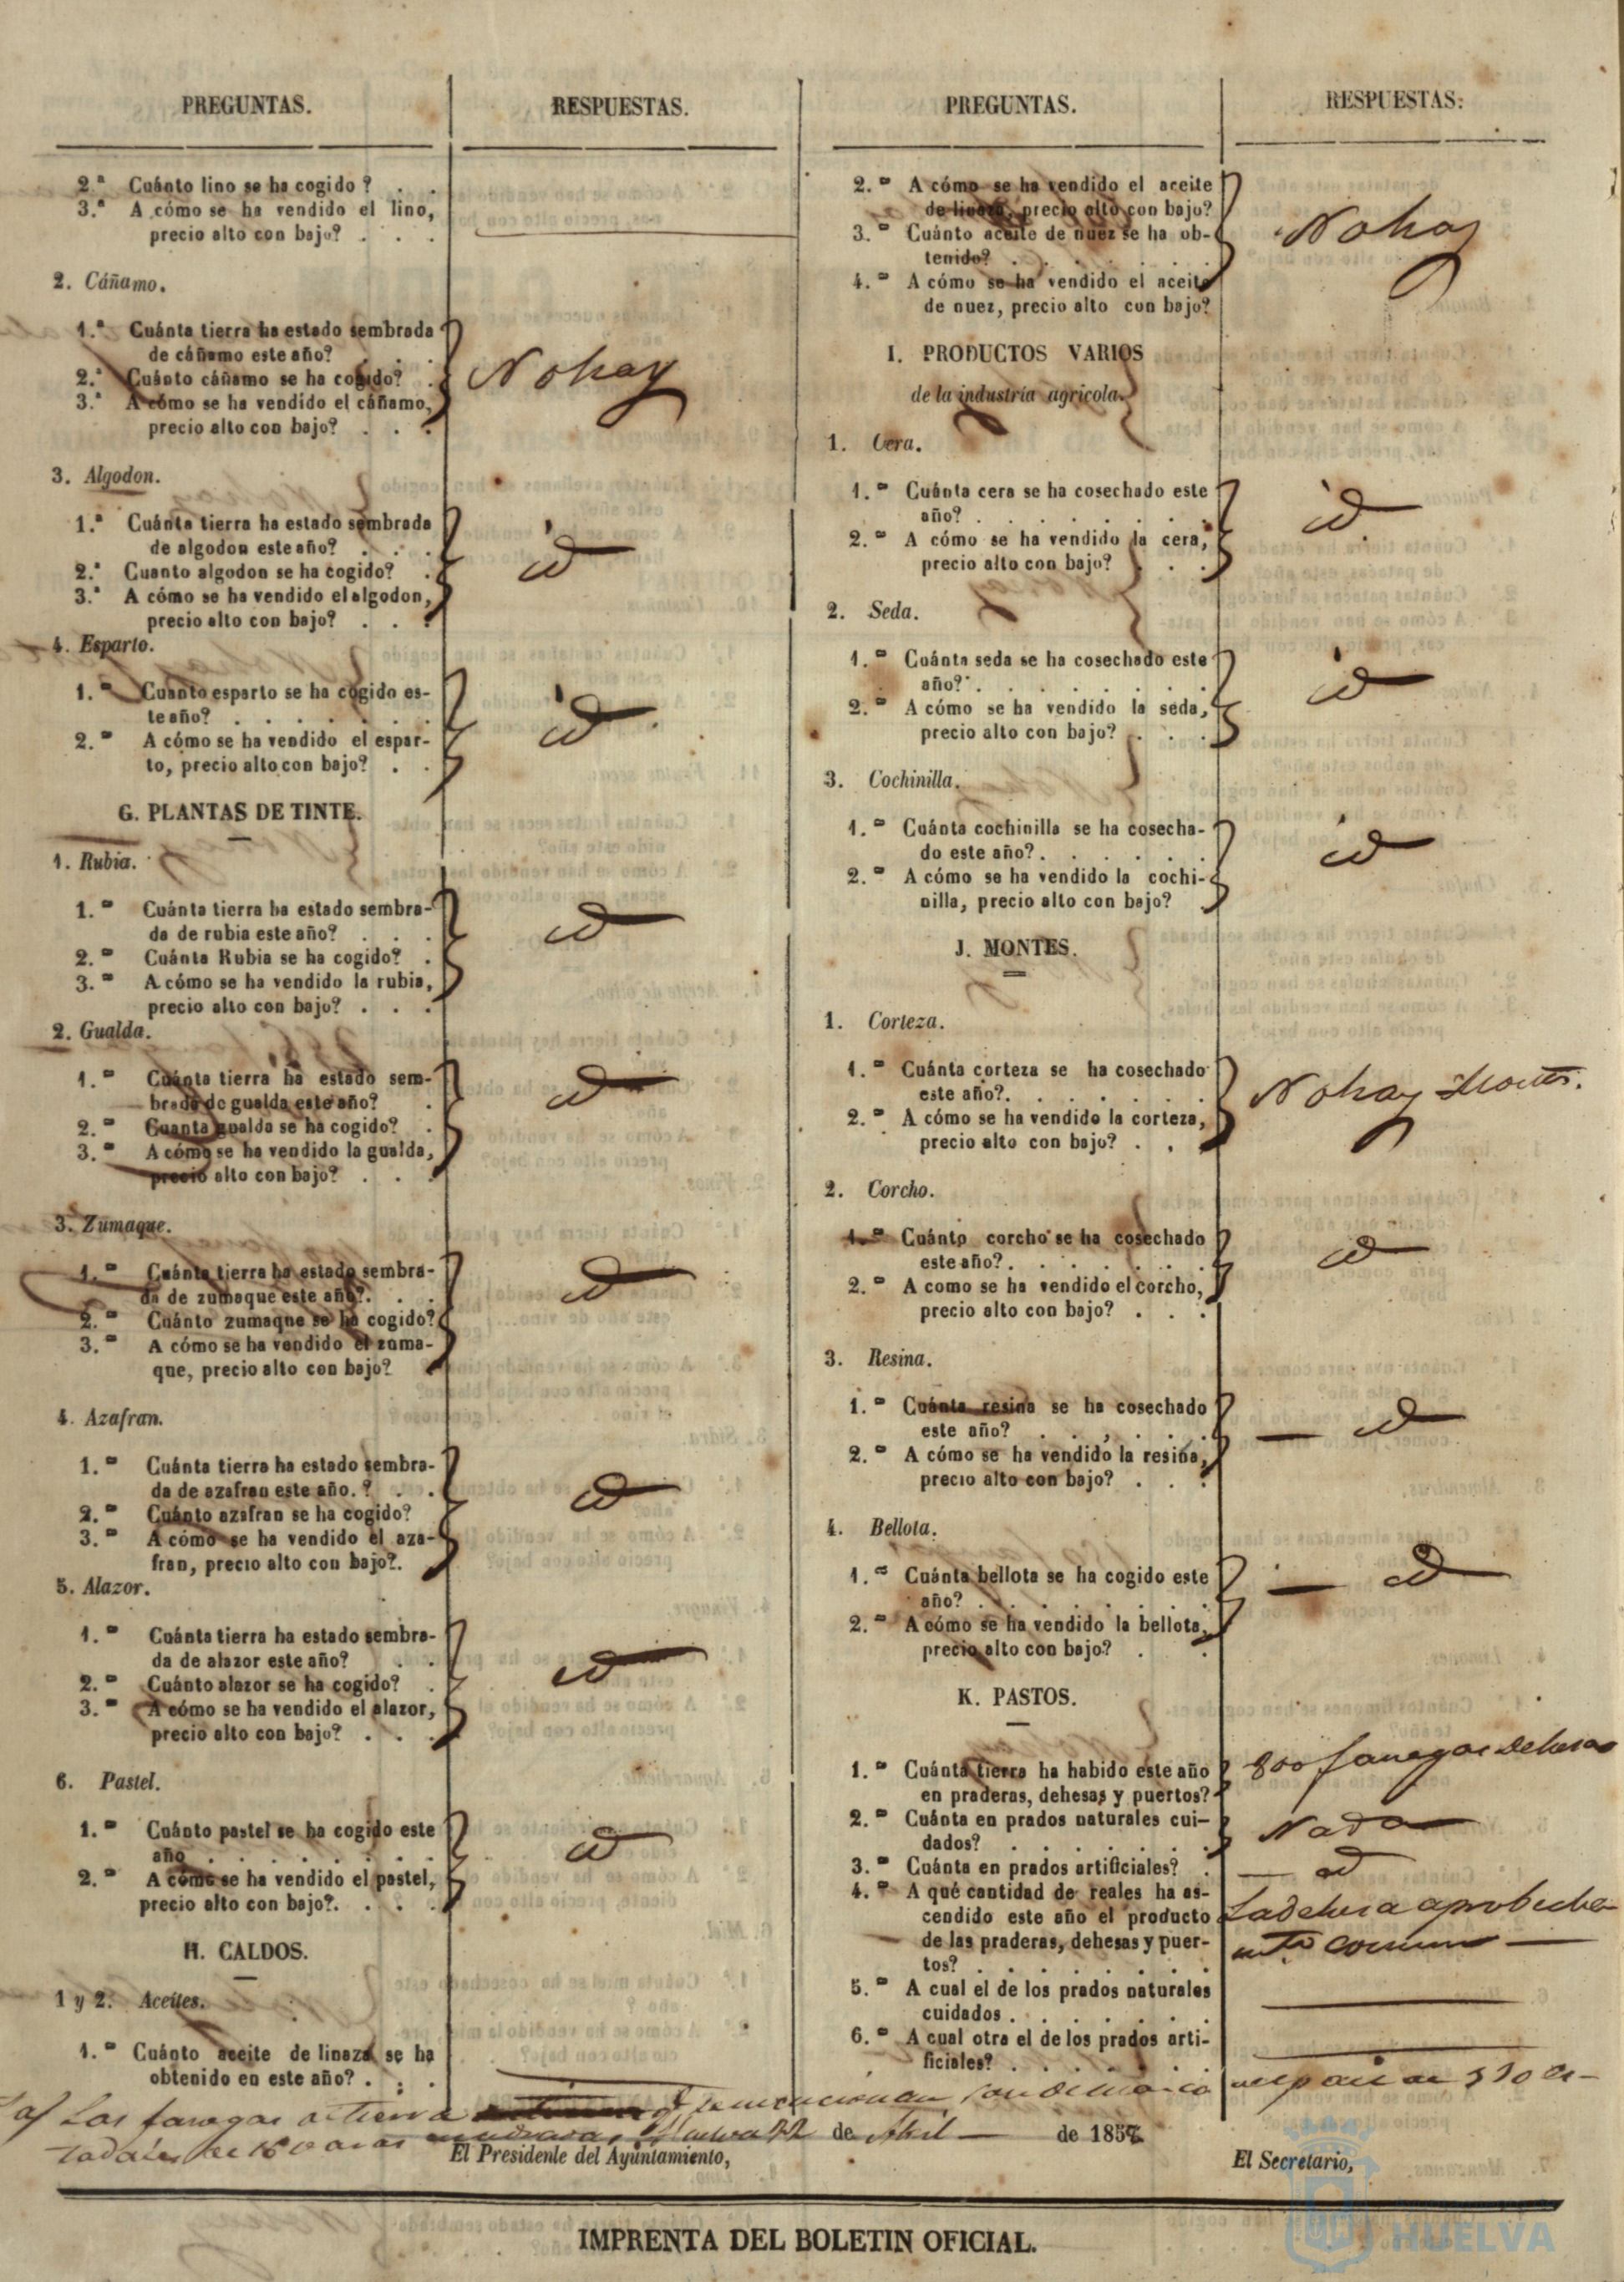 PREGUNTAS.
RESPUESTAS.
2.ª Cuánto lino se ha cogido ? . .
3.ª A cómo se ha vendido el lino,
precio alto con bajo? . . .
2. Cáñamo.
1.ª Cuánta tierra ha estado sembrada
de cáñamo este año? . . .
2.ª Cuánto cáñamo se ha cogido? .
3.ª A cómo se ha vendido el cáñamo,
precio alto con bajo? . . .
No hay
3. Algodon.
1.ª Cuánta tierra ha estado sembrada
de algodon este año? . . .
2.ª Cuanto algodon se ha cogido? .
3.ª A cómo se ha vendido el algodon,
precio alto con bajo? . . .
id
4. Esparto.
1.ª Cuanto esparto se ha cogido es-
te año? . . . . . . .
2.ª A cómo se ha vendido el espar-
to, precio alto con bajo? . .
id
G. PLANTAS DE TINTE.
1. Rubia.
1.ª Cuánta tierra ha estado sembra-
da de rubia este año? . . .
2.ª Cuánta Rubia se ha cogido? .
3.ª A cómo se ha vendido la rubia,
precio alto con bajo? . . .
id
2. Gualda.
1.ª Cuánta tierra ha estado sem-
brada de gualda este año? .
2.ª Cuanta gualda se ha cogido? .
3.ª A cómo se ha vendido la gualda,
precio alto con bajo? . . .
id
3. Zumaque.
1.ª Cuánta tierra ha estado sembra-
da de zumaque este año?. . .
2.ª Cuánto zumaque se ha cogido?
3.ª A cómo se ha vendido el zuma-
que, precio alto con bajo?
id
4. Azafran.
1.ª Cuánta tierra ha estado sembra-
da de azafran este año. ? . .
2.ª Cuánto azafran se ha cogido?
3.ª A cómo se ha vendido el aza-
fran, precio alto con bajo?.
id
5. Alazor.
1.ª Cuánta tierra ha estado sembra-
da de alazor este año? . .
2.ª Cuánto alazor se ha cogido? .
3.ª A cómo se ha vendido el alazor,
precio alto con bajo? . . .
id
6. Pastel.
1.ª Cuánto pastel se ha cogido este
año . . . . . . . .
2.ª A cómo se ha vendido el pastel,
precio alto con bajo?. . . .
id
H. CALDOS.
1 y 2. Aceites.
1.ª Cuánto aceite de linaza se ha
obtenido en este año? . . .
PREGUNTAS.
RESPUESTAS:
2.ª A cómo se ha vendido el aceite
de linaza, precio alto con bajo?
3.ª Cuánto aceite de nuez se ha ob-
tenido? . . . . . . .
4.ª A cómo se ha vendido el aceite
de nuez, precio alto con bajo?
No hay
I. PRODUCTOS VARIOS
de la industria agricola.
1. Cera.
1.ª Cuánta cera se ha cosechado este
año? . . . . . . . .
2.ª A cómo se ha vendido la cera,
precio alto con bajo? . . .
id
2. Seda.
1.ª Cuánta seda se ha cosechado este
año? . . . . . . . .
2.ª A cómo se ha vendido la seda,
precio alto con bajo? . . .
id
3. Cochinilla.
1.ª Cuánta cochinilla se ha cosecha-
do este año? . . . . . .
2.ª A cómo se ha vendido la cochi-
nilla, precio alto con bajo? .
id
J. MONTES.
1. Corteza.
1.ª Cuánta corteza se ha cosechado
este año?. . . . . . .
2.ª A cómo se ha vendido la corteza,
precio alto con bajo? . . .
No hay Montes.
2. Corcho.
1.ª Cuánto corcho se ha cosechado
este año? . . . . . . .
2.ª A como se ha vendido el corcho,
precio alto con bajo? . . .
id
3. Resina.
1.ª Cuánta resina se ha cosechado
este año? . . . . . .
2.ª A cómo se ha vendido la resina,
precio alto con bajo? . . .
— id
4. Bellota.
1.ª Cuánta bellota se ha cogido este
año? . . . . . . . .
2.ª A cómo se ha vendido la bellota,
precio alto con bajo? . .
— id
K. PASTOS.
1.ª Cuánta tierra ha habido este año
en praderas, dehesas y puertos?
800 fanegas dehesas
2.ª Cuánta en prados naturales cui-
dados? . . . . . . .
Nada
3.ª Cuánta en prados artificiales? .
— id
4.ª A qué cantidad de reales ha as-
cendido este año el producto
de las praderas, dehesas y puer-
tos? . . . . . . . .
La dehesa aprobecha-
mto comun —
5.ª A cual el de los prados naturales
cuidados . . . . . . .
6.ª A cual otra el de los prados arti-
ficiales? . . . . . . .
Las fanegas de tierra
de Abril — de 1857
El Presidente del Ayuntamiento,
El Secretario,
IMPRENTA DEL BOLETIN OFICIAL.
HUELVA